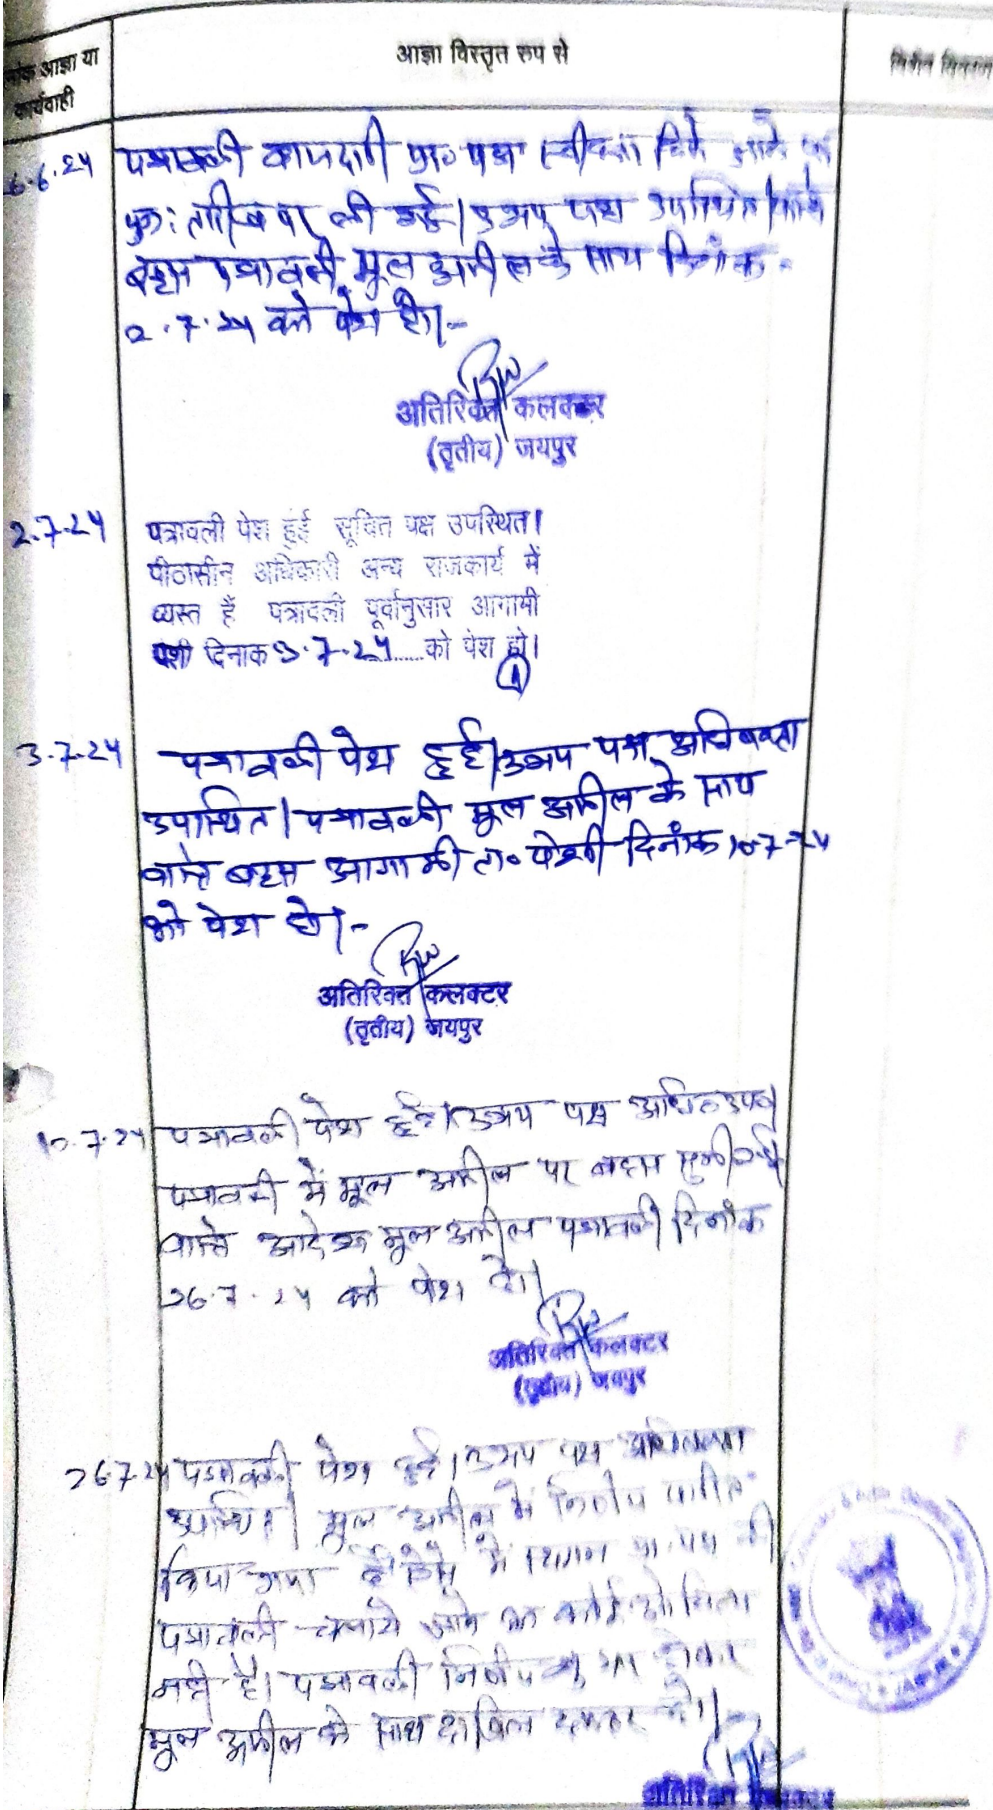 आज्ञा या
कार्यवाही
आज्ञा विस्तृत रूप से
6.6.24
पत्रावली वापसी प्रा० पत्र स्वीकार किये जाने पर
पुनः तारीख पर ली गई। उभय पक्ष उपस्थित। वास्ते
बहस पत्रावली मूल अपील के साथ दिनांक
2.7.24 को पेश हो।-
अतिरिक्त कलक्टर
(तृतीय) जयपुर
2.7.24
पत्रावली पेश हुई सूचित पक्ष उपस्थित।
पीठासीन अधिकारी अन्य राजकार्य में
व्यस्त हैं पत्रावली पूर्वानुसार आगामी
पेशी दिनांक 3.7.24 को पेश हो।
3.7.24
पत्रावली पेश हुई। उभय पक्ष अधिवक्ता
उपस्थित। पत्रावली मूल अपील के साथ
वास्ते बहस आगामी ता० पेशी दिनांक 10-7-24
को पेश हो।-
अतिरिक्त कलक्टर
(तृतीय) जयपुर
10.7.24
पत्रावली पेश हुई। उभय पक्ष अधि० उप०
पत्रावली में मूल अपील पर बहस सुनी गई
वास्ते आदेश मूल अपील पत्रावली दिनांक
26.7.24 को पेश हो।
अतिरिक्त कलक्टर
(तृतीय) जयपुर
26.7.24
पत्रावली पेश हुई। उभय पक्ष अधिवक्ता
उपस्थित। मूल अपील में निर्णय पारित
किया गया है। ऐसे में स्थगन प्रा. पत्र की
पत्रावली चलाये जाने का कोई औचित्य
नहीं है। पत्रावली होकर
मूल अपील के साथ दाखिल दफ्तर हो।-
अतिरिक्त कलक्टर